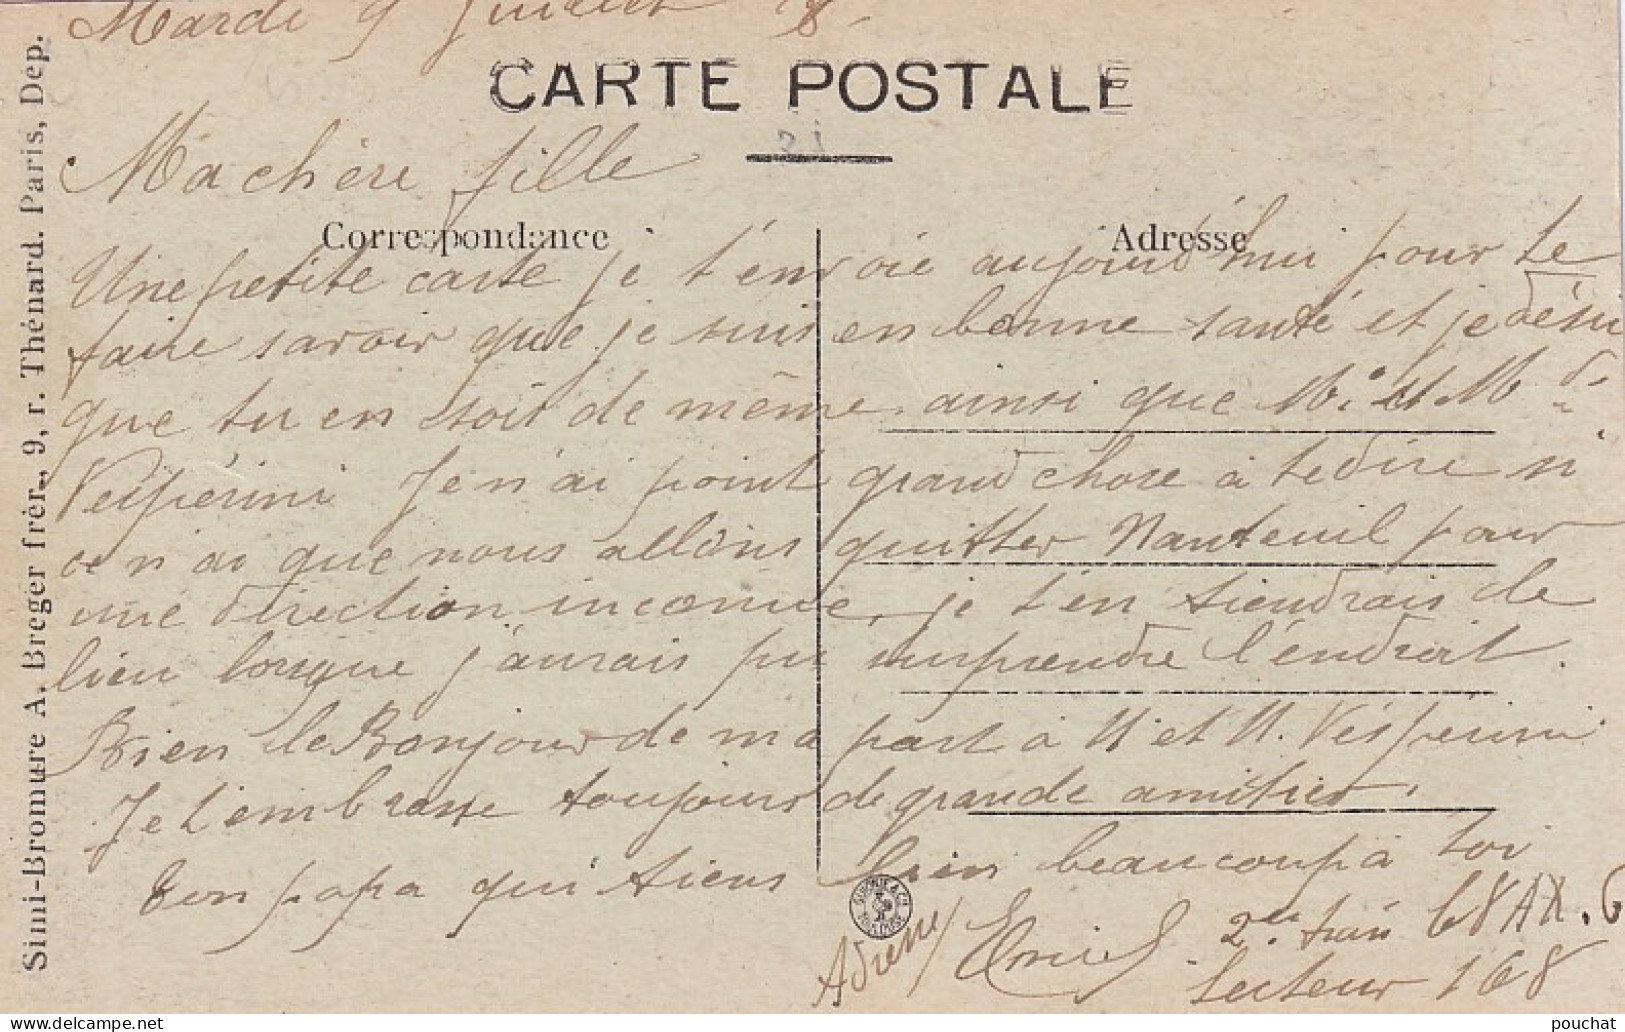 Mardi 9 Juillet 18.
CARTE POSTALE
Ma chère fille
Correspondance
Adresse
Une petite carte je t'envoie aujourd'hui pour te
faire savoir que je suis en bonne santé et je désir
que tu en soit de même ainsi que Mr et Mde
Vespérini Je n'ai point grand chose à te dire si
ce n'ai que nous allons quitter Nanteuil pour
une direction inconnue, je t'en tiendrais le
lieu lorsque j'aurais pu surprendre l'endroit.
Bien le Bonjour de ma part à M et M. Vespérini
Je t'embrasse toujours de grande amitier.
ton papa qui tiens bien beaucoup à toi
Emile
Adresse 68
Secteur 168
Simi-Bromure A. Breger frér., 9, r. Thénard. Paris, Dep.
pouchat